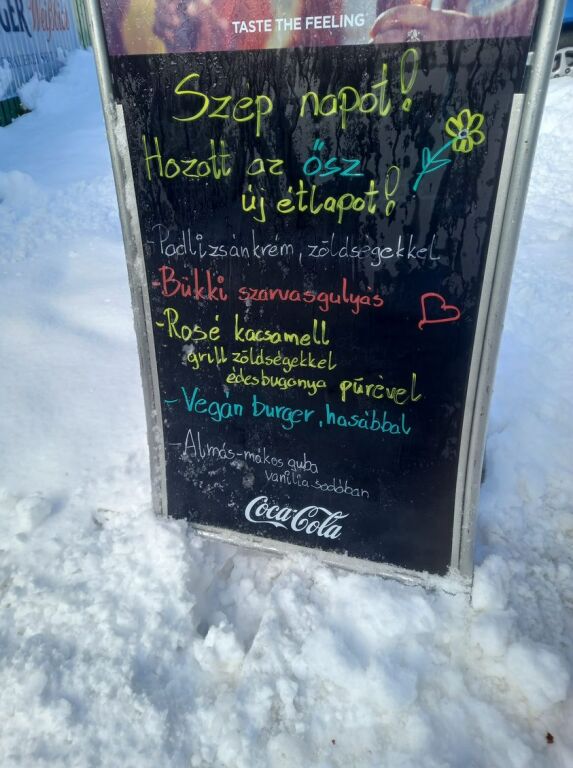 GER Weißbier
TASTE THE FEELING
Szep napot!
Hozott az ősz
új étlapot!
-Padlizsánkrém, zöldségekkel
-Bükki szarvasgulyás
-Rosé kacsamell
grill zöldségekkel
édesburgonya pürével
-Vegán burger, hasábbal
-Almás-mákos guba
vanilia sodóban
Coca-Cola